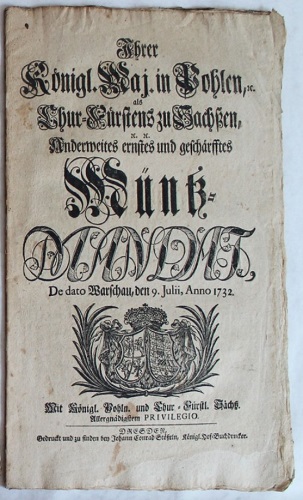 Ihrer
Königl. Maj. in Pohlen, ꝛc.
als
Chur-Fürstens zu Sachßen,
ꝛc. ꝛc.
Anderweites ernstes und geschärfftes
Müntz-
MANDAT,
De dato Warschau, den 9. Julii, Anno 1732.
Mit Königl. Pohln. und Chur-Fürstl. Sächß.
Allergnädigsten PRIVILEGIO.
DRESDEN,
Gedruckt und zu finden bey Johann Conrad Stößeln, Königl. Hof-Buchdrucker.